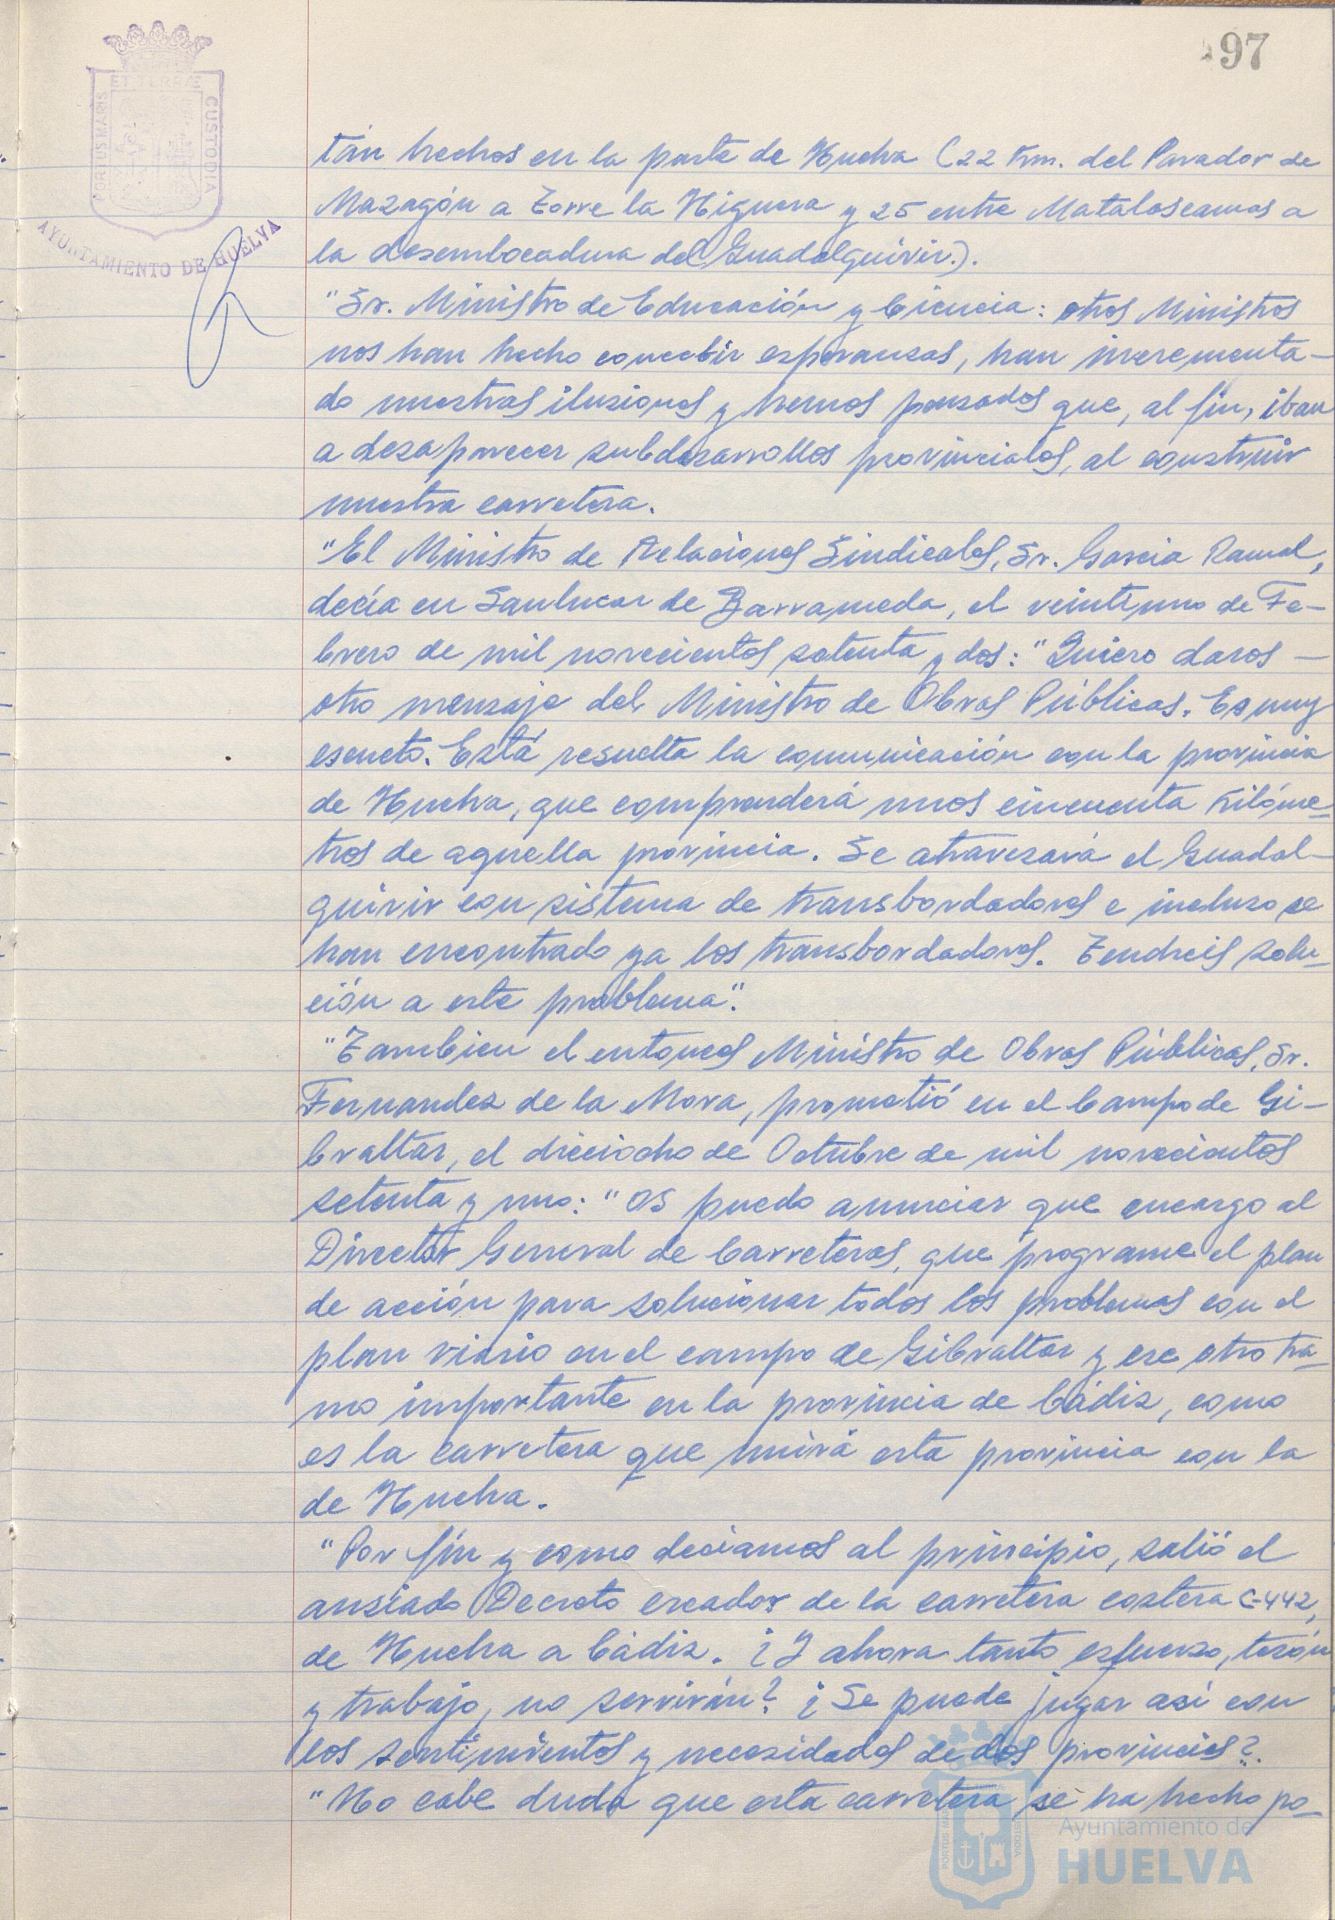 97
PORTUS MARIS ET TERRÆ CUSTODIA
AYUNTAMIENTO DE HUELVA
tán hechos en la parte de Huelva (22 Km. del Parador de
Mazagón a Torre la Higuera y 25 entre Matalascamas a
la desembocadura del Guadalquivir.).
"Sr. Ministro de Educación y Ciencia: otros Ministros
nos han hecho concebir esperanzas, han incrementa-
do nuestras ilusiones y hemos pensados que, al fin, iban
a desaparecer subdesarrollos provinciales, al construir
nuestra carretera.
"El Ministro de Relaciones Sindicales, Sr. Garcia Ramal,
decía en Sanlucar de Barrameda, el veintiuno de Fe-
brero de mil novecientos setenta y dos: "Quiero daros -
otro mensaje del Ministro de Obras Públicas. Es muy
escueto. Está resuelta la comunicación con la provincia
de Huelva, que comprenderá unos cincuenta kilóme-
tros de aquella provincia. Se atravesará el Guadal-
quivir con sistema de transbordadores e incluso se
han encontrado ya los transbordadores. Tendreis solu-
ción a este problema".
"Tambien el entonces Ministro de Obras Públicas, Sr.
Fernandez de la Mora, prometió en el Campo de Gi-
braltar, el dieciocho de Octubre de mil novecientos
setenta y uno: "Os puedo anunciar que encargo al
Director General de Carreteras, que programe el plan
de acción para solucionar todos los problemas con el
plan viario en el campo de Gibraltar y ese otro tra-
mo importante en la provincia de Cádiz, como
es la carretera que unirá esta provincia con la
de Huelva.
"Por fín y como deciamos al principio, salió el
ansiado Decreto creador de la carretera costera C-442,
de Huelva a Cádiz. ¿Y ahora tanto esfuerzo, tesón
y trabajo, no servirán? ¿Se puede jugar asi con
los sentimientos y necesidades de dos provincias?.
"No cabe duda que esta carretera se ha hecho po-
Ayuntamiento de
HUELVA